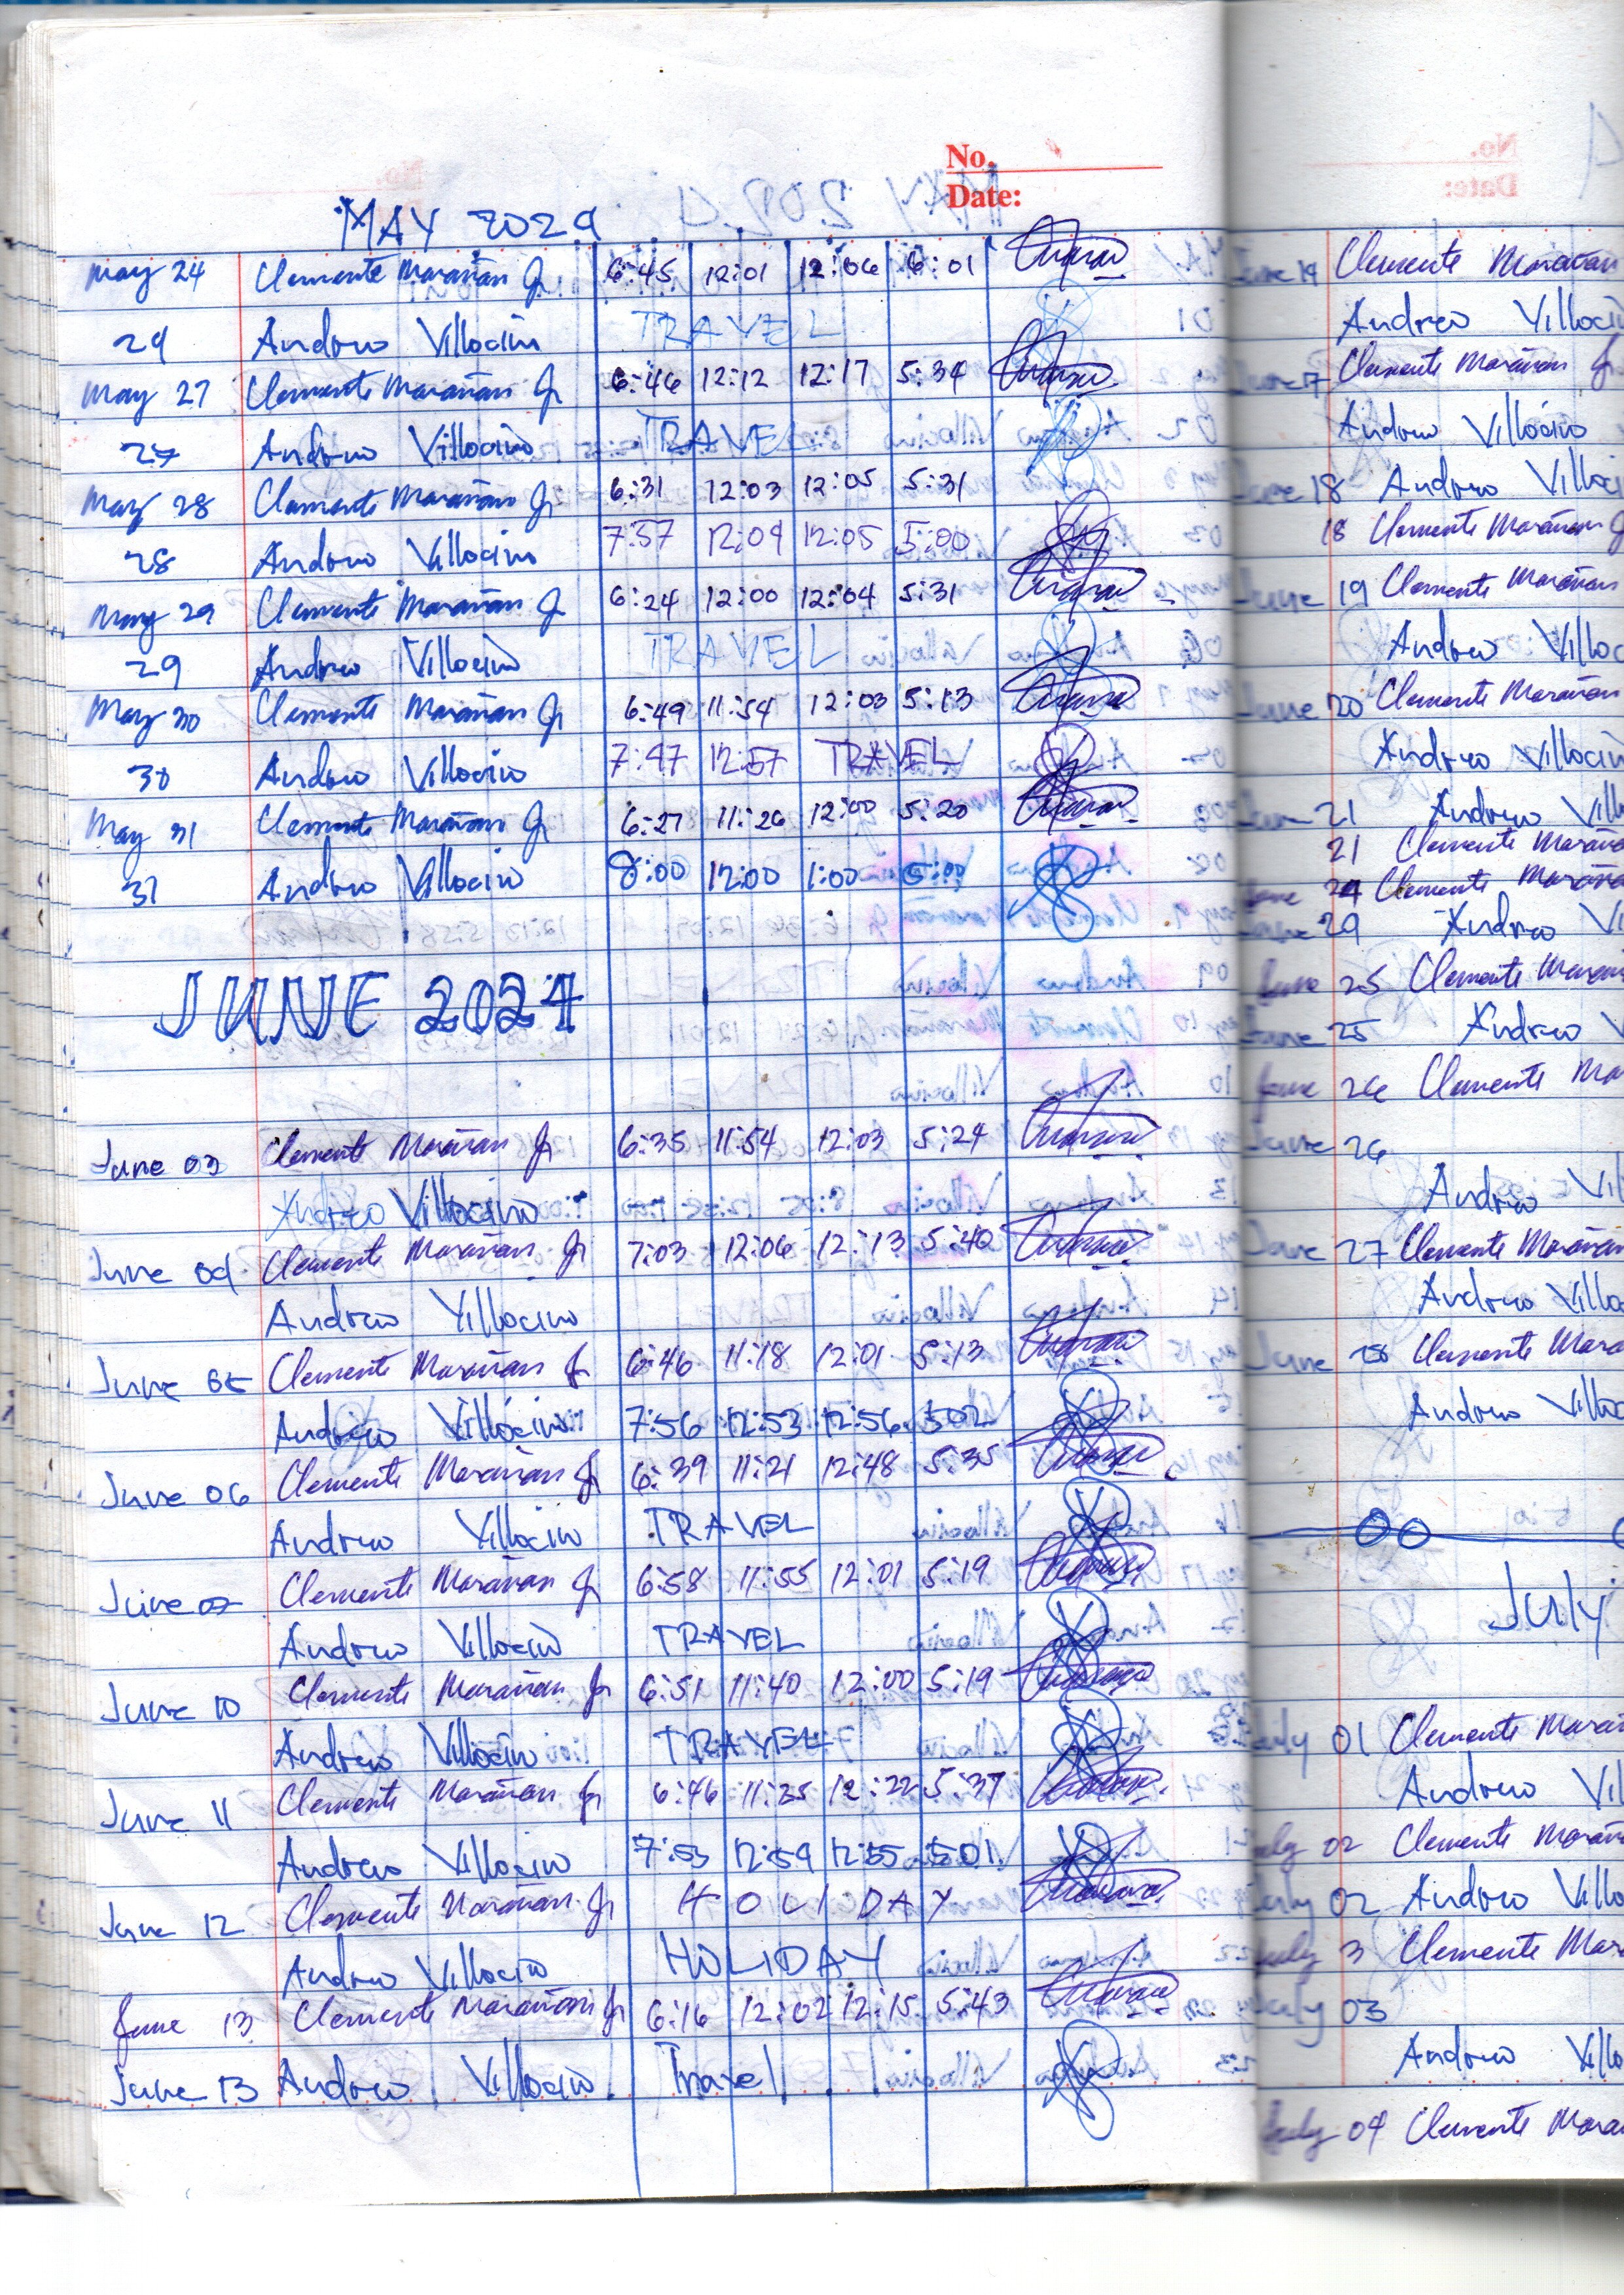 No.
Date:
MAY 2024
May 24 Clemente Marañan Jr 6:45 12:01 12:06 6:01
24 Andrew Villocino TRAVEL
May 27 Clemente Marañan Jr 6:46 12:12 12:17 5:34
27 Andrew Villocino TRAVEL
May 28 Clemente Marañan Jr 6:31 12:03 12:05 5:31
28 Andrew Villocino 7:57 12:04 12:05 5:00
May 29 Clemente Marañan Jr 6:24 12:00 12:04 5:31
29 Andrew Villocino TRAVEL
May 30 Clemente Marañan Jr 6:49 11:54 12:03 5:13
30 Andrew Villocino 7:47 12:57 TRAVEL
May 31 Clemente Marañan Jr 6:27 11:26 12:00 5:20
31 Andrew Villocino 8:00 12:00 1:00 5:00
JUNE 2024
June 03 Clemente Marañan Jr 6:35 11:54 12:03 5:24
Andrew Villocino
June 04 Clemente Marañan Jr 7:03 12:06 12:13 5:40
Andrew Villocino
June 05 Clemente Marañan Jr 6:46 11:18 12:01 5:13
Andrew Villocino 7:56 12:53 12:56 5:02
June 06 Clemente Marañan Jr 6:39 11:21 12:48 5:35
Andrew Villocino TRAVEL
June 07 Clemente Marañan Jr 6:58 11:55 12:01 5:19
Andrew Villocino TRAVEL
June 10 Clemente Marañan Jr 6:51 11:40 12:00 5:19
Andrew Villocino TRAVEL
June 11 Clemente Marañan Jr 6:46 11:35 12:22 5:37
Andrew Villocino 7:53 12:54 12:55 5:01
June 12 Clemente Marañan Jr HOLIDAY
Andrew Villocino HOLIDAY
June 13 Clemente Marañan Jr 6:16 12:02 12:15 5:43
June 13 Andrew Villocino Travel
Clemente Marañan
Andrew Villoci
17 Clemente Marañan Jr
Andrew Villocino
June 18 Andrew Villoci
18 Clemente Marañan J
June 19 Clemente Marañan
Andrew Villoc
June 20 Clemente Marañan
Andrew Villocin
June 21 Andrew Vill
21 Clemente Maraña
24 Clemente Maraña
24 Andrew Vi
June 25 Clemente Maraña
June 25 Andrew V
June 26 Clemente Mar
June 26
Andrew Vil
June 27 Clemente Marañan
Andrew Villoc
June 28 Clemente Mara
Andrew Villoc
July
July 01 Clemente Mara
Andrew Vil
July 02 Clemente Maraña
July 02 Andrew Villo
July 3 Clemente Mar
July 03
Andrew Villo
July 04 Clemente Mara